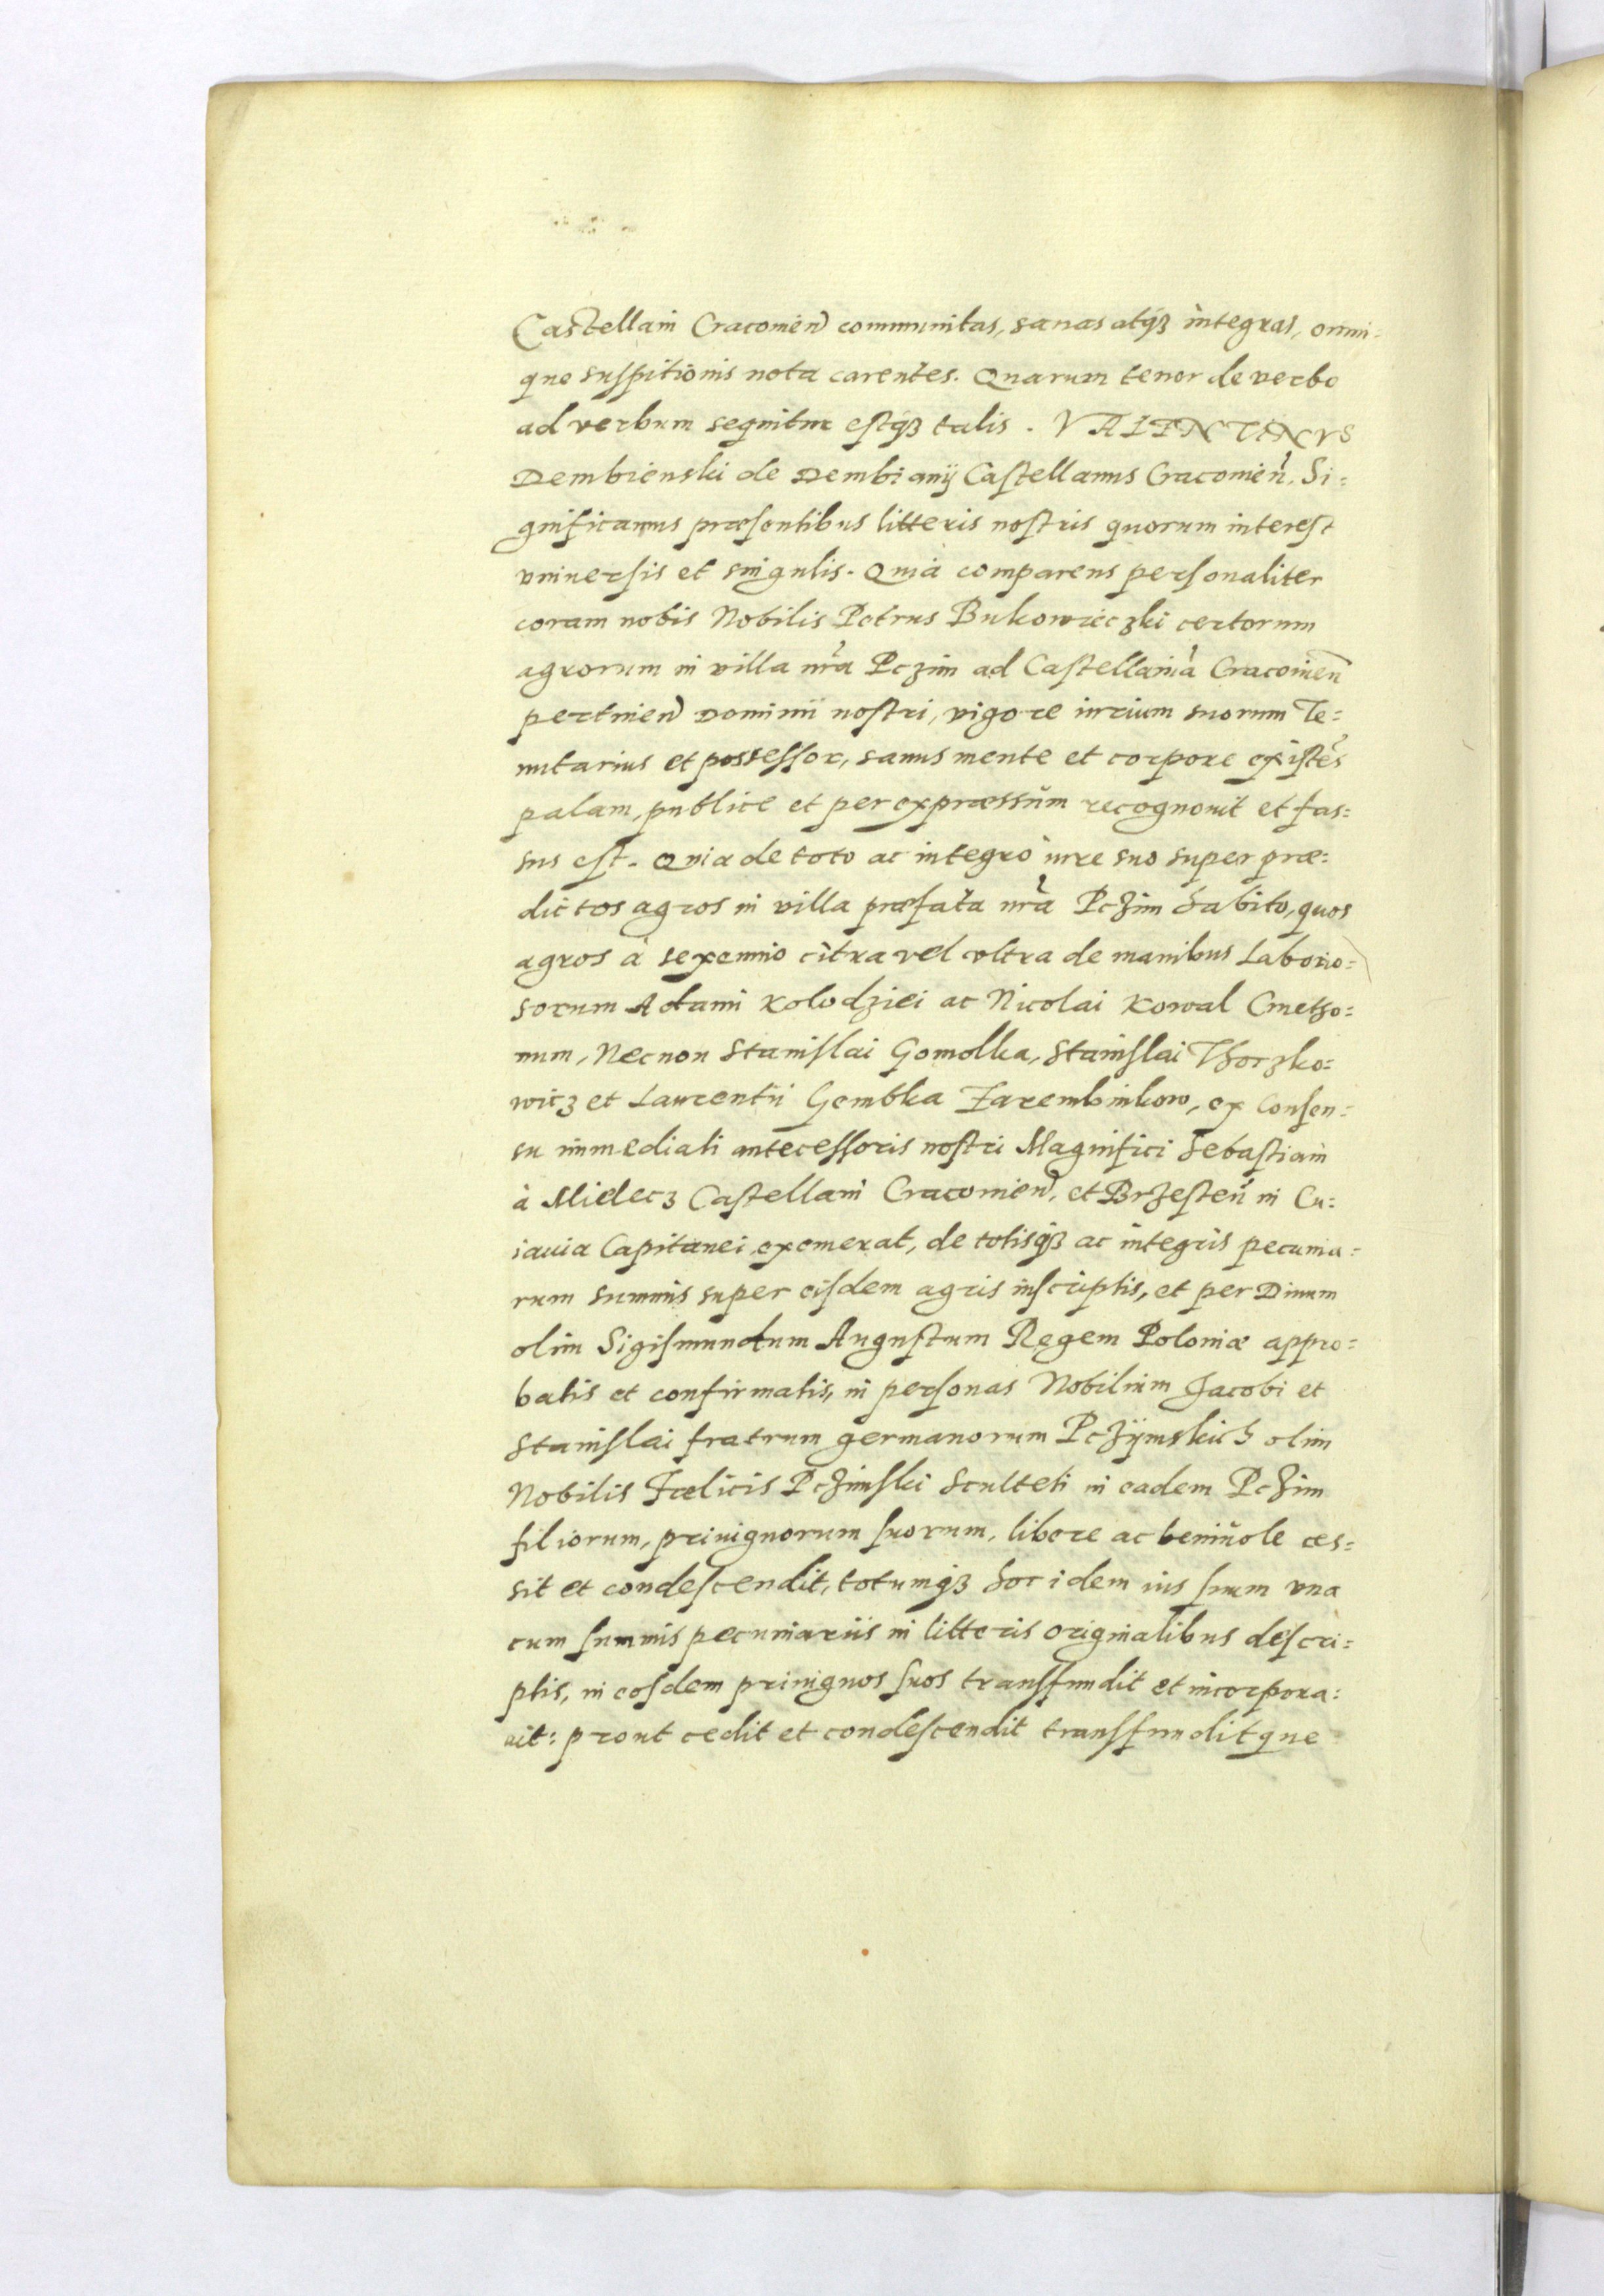 Castellani Cracovien̄ communitas, sanas atqꝫ integras, omni-
que suspitionis nota carentes. Quarum tenor de verbo
ad verbum sequitur estqꝫ talis. VALENTINVS
Dembienski de Dembianÿ Castellanus Cracovien̄. Si:
gnificamus præsentibus litteris nostris quorum interest
vniuersis et singulis. Quia comparens personaliter
coram nobis Nobilis Petrus Bukowieczki certorum
agrorum in villa nr̄a Pczim ad Castellaniā Cracovien̄
pertinen̄ Dominii nostri, vigore iurium suorum Te:
nutarius et possessor, sanus mente et corpore existēs
palam, publice et per expræssum recognouit et fas:
sus est. Quia de toto ac integro iure suo super præ:
dictos agros in villa præfata nr̄a Pczim habito, quos
agros à sexennio citra vel vltra de manibus Laborio:
sorum Adami Kolodziei ac Nicolai Kowal Cmetho:
num, Necnon Stanislai Gomolka, Stanislai Thorzko:
wicz et Laurentii Gembka Zarembinkow, ex Consen:
su immediati antecessoris nostri Magnifici Sebastiani
à Mielecz Castellani Cracovien̄, et Brzesten̄ in Cu:
iauia Capitanei exemerat, de totisqꝫ ac integris pecunia:
rum summis super eisdem agris inscriptis, et per Diuum
olim Sigismundum Augustum Regem Poloniæ appro:
batis et confirmatis, in personas Nobilium Jacobi et
Stanislai fratrum germanorum Pczÿmskich olim
Nobilis Fœlicis Pczimski Sculteti in eadem Pczim
filiorum, priuignorum suorum, libere ac beniuole ces:
sit et condescendit, totumqꝫ hoc idem ius suum vna
cum summis pecuniariis in litteris originalibus descri:
ptis, in eosdem priuignos suos transfundit et incorpora:
uit: prout cedit et condescendit transfunditque